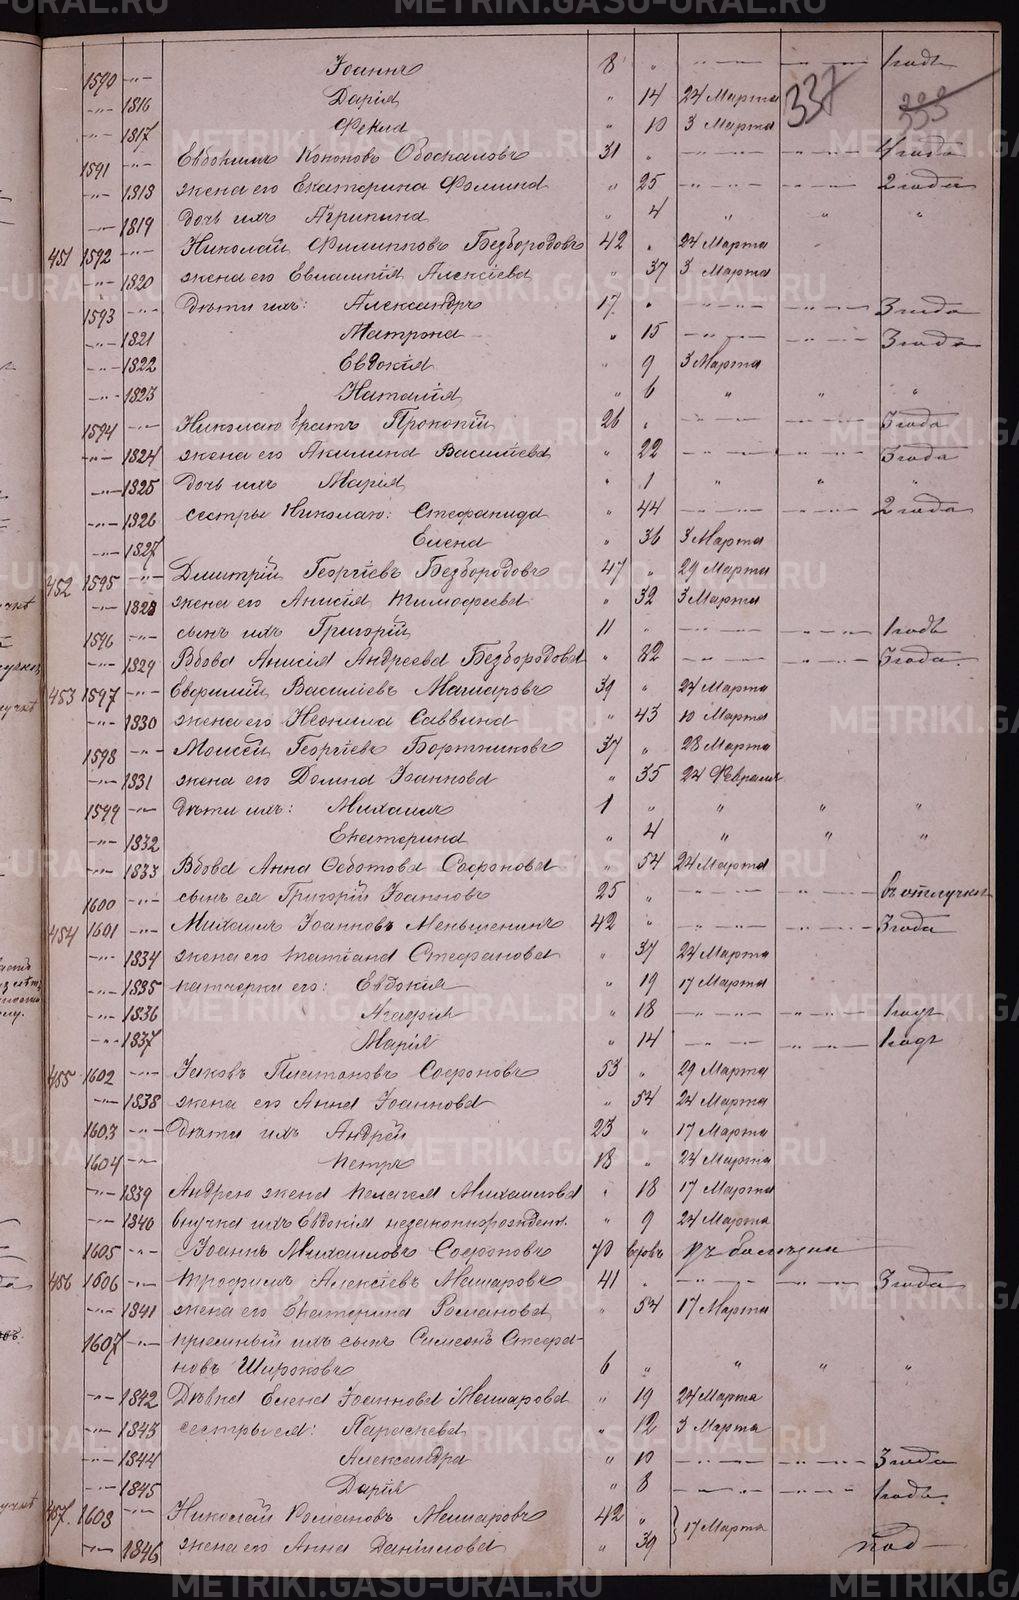 1590 -"- Іоаннъ 8 " -"- -"- 1 годъ
-"- 1816 Дарія " 14 24 Марта 337 333
-"- 1817 Фекла " 10 3 Марта
1591 -"- Евдокимъ Кононовъ 31 " -"- -"- 4 года
-"- 1818 жена его Екатерина Фомина " 25 -"- -"- 2 года
-"- 1819 дочь ихъ Агрипина " 4 " " "
451 1592 -"- Николай Филипповъ Безбородовъ 42 " 24 Марта
-"- 1820 жена его Евлампія Алексіева " 37 3 Марта
1593 -"- Дѣти ихъ: Александръ 17 " -"- -"- 3 года
-"- 1821 Матрона " 15 -"- -"- 3 года
-"- 1822 Евдокія " 9 3 Марта
-"- 1823 Наталія " 6 " " "
1594 -"- Николаю братъ Прокопій 26 " -"- -"- 3 года
-"- 1824 жена его Акилина Василіева " 22 -"- -"- 3 года
-"- 1825 дочь ихъ Марія " 1 " " "
-"- 1826 сестры Николаю: Стефанида " 44 -"- -"- 2 года
-"- 1827 Елена " 36 3 Марта
452 1595 -"- Димитрій Георгіевъ Безбородовъ 47 " 29 Марта
-"- 1828 жена его Анисія Тимофеева " 32 3 Марта
1596 -"- сынъ ихъ Григорій 11 " -"- -"- 1 годъ
-"- 1829 Вдова Анисія Андреева Безбородова " 82 -"- -"- 3 года.
453 1597 -"- Евфимій Василіевъ Машаровъ 39 " 24 Марта
-"- 1830 жена его Неонила Саввина " 43 10 Марта
1598 -"- Моисей Георгіевъ Бортниковъ 37 " 28 Марта
-"- 1831 жена его Домна Іоаннова " 35 24 Февраля
1599 -"- Дѣти ихъ: Михаилъ 1 " " " "
-"- 1832 Екатерина " 4 " " "
-"- 1833 Вдова Анна Федотова Софонова " 54 24 Марта
1600 -"- сынъ ея Григорій Іоанновъ 25 " -"- -"- въ отлучкѣ
454 1601 -"- Михаилъ Іоанновъ Меньшенинъ 42 " -"- -"- 3 года
-"- 1834 жена его Татіана Стефанова " 37 24 Марта
-"- 1835 патчерки его: Евдокія " 19 17 Марта
-"- 1836 Агафія " 18 -"- -"- 1 годъ
-"- 1837 Марія " 14 -"- -"- 1 годъ
455 1602 -"- Іаковъ Платоновъ Софоновъ 53 " 29 Марта
-"- 1838 жена его Анна Іоаннова " 54 24 Марта
1603 -"- Дѣти ихъ Андрей 23 " 17 Марта
1604 -"- Петръ 18 " 24 Марта
-"- 1839 Андрею жена Пелагея Михаилова " 18 17 Марта
-"- 1840 внучка ихъ Евдокія незаконнорожден. " 9 24 Марта
1605 -"- Іоаннъ Михаиловъ Софоновъ 70
456 1606 -"- Трофимъ Алексіевъ Машаровъ 41 " -"- -"- 3 года
-"- 1841 жена его Екатерина Романова " 54 17 Марта
1607 -"- пріемный ихъ сынъ Симеонъ Стефа-
новъ Широковъ 6 " " " "
-"- 1842 Дѣвка Елена Іоаннова Машарова " 19 24 Марта
-"- 1843 сестры ея: Параскева " 12 3 Марта
-"- 1844 Александра " 10 -"- -"- 3 года
-"- 1845 Дарія " 8 -"- -"- 1 годъ.
457. 1608 -"- Николай Романовъ Машаровъ 42 " } 17 Марта
-"- 1846 жена его Анна Даніилова " 39
METRIKI.GASO-URAL.RU